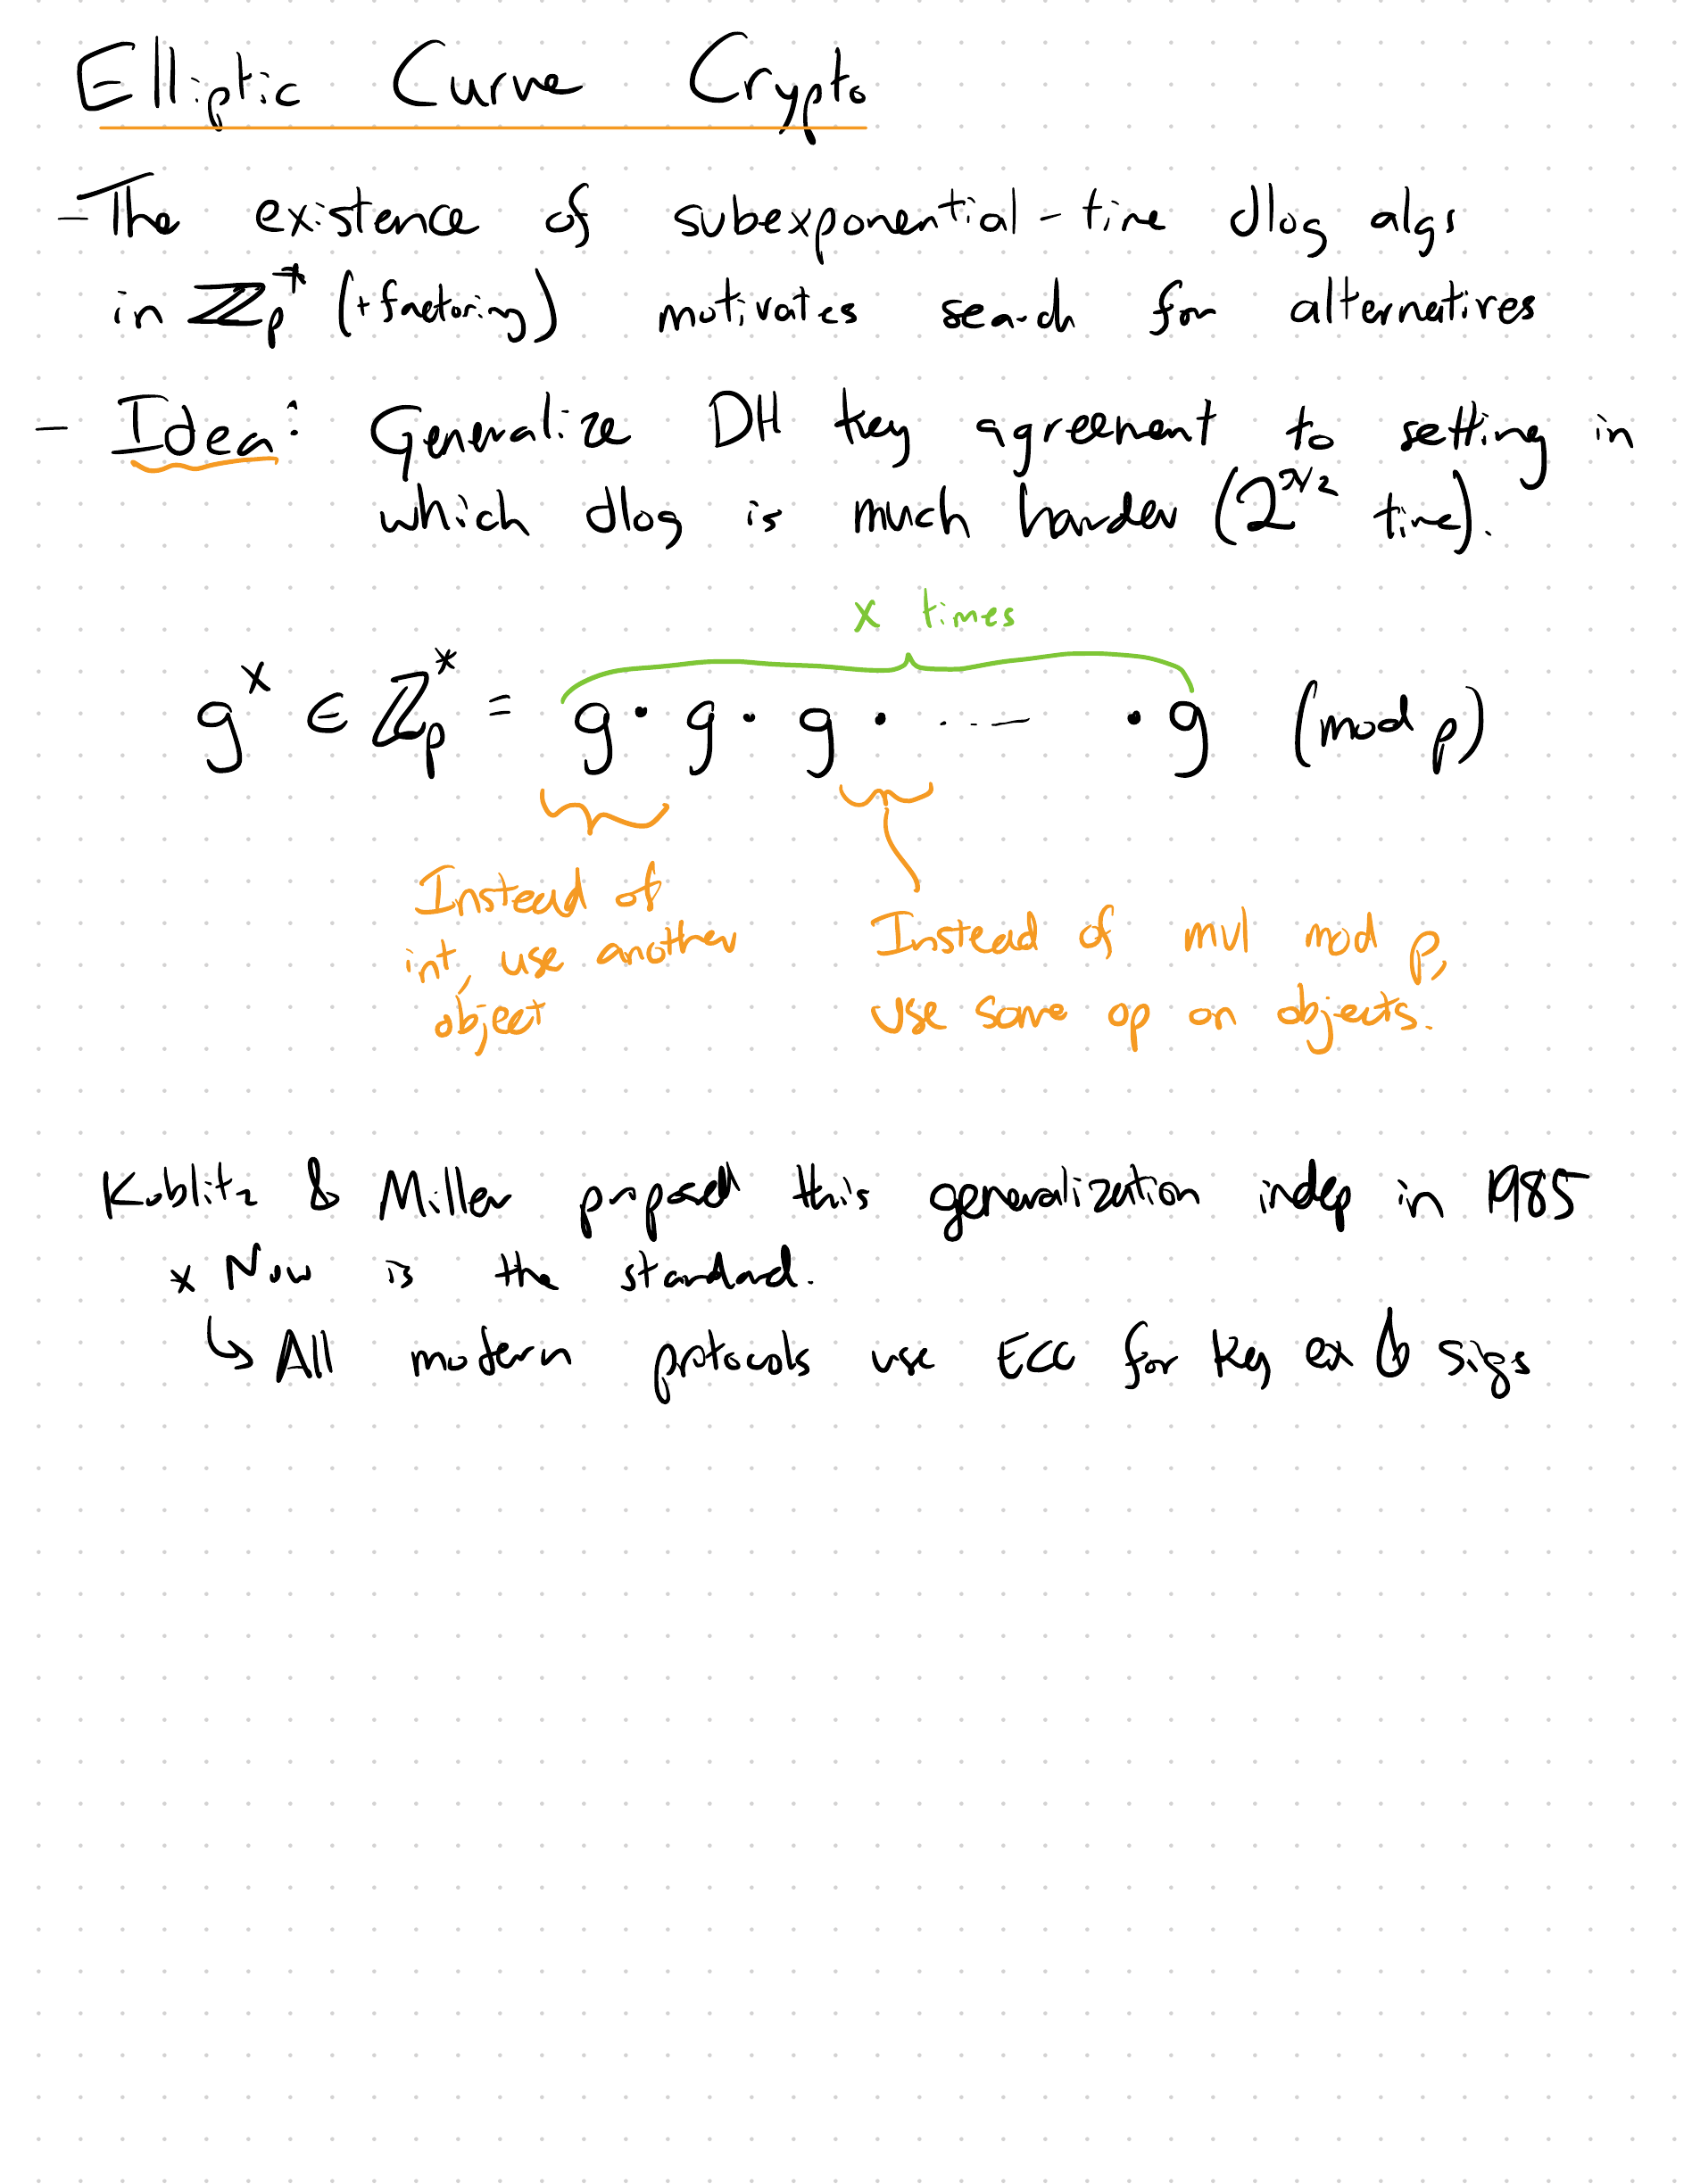 Elliptic Curve Crypto
- The existence of subexponential-time dlog algs
in ℤp* (+factoring) motivates search for alternatives
- Idea: Generalize DH key agreement to setting in
which dlog is much harder (2^λ/2 time).
x times
g^x ∈ ℤp* = g · g · g · ... · g (mod p)
Instead of
int, use another
object
Instead of mul mod p,
use some op on objects.
Koblitz & Miller proposed this generalization indep in 1985
* Now is the standard.
↳ All modern protocols use ECC for key ex & sigs